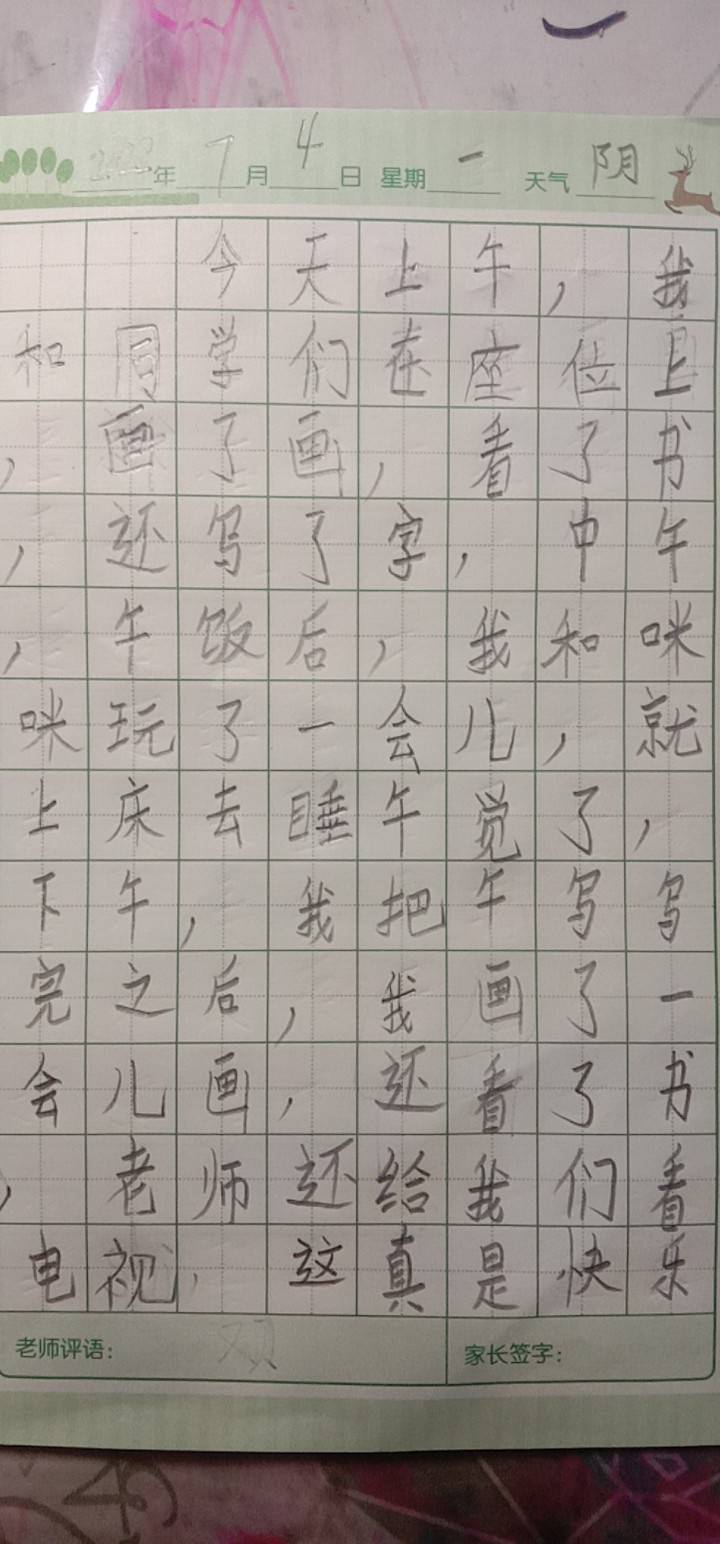 2022年7月4日 星期一 天气 阴
今天上午，我
和同学们在座位上
，画了画，看了书
，还写了字，中午
，午饭后，我和咪
咪玩了一会儿，就
上床去睡午觉了，
下午，我把午写写
完之后，我画了一
会儿画，还看了书
，老师还给我们看
电视，这真是快乐
老师评语： 家长签字：